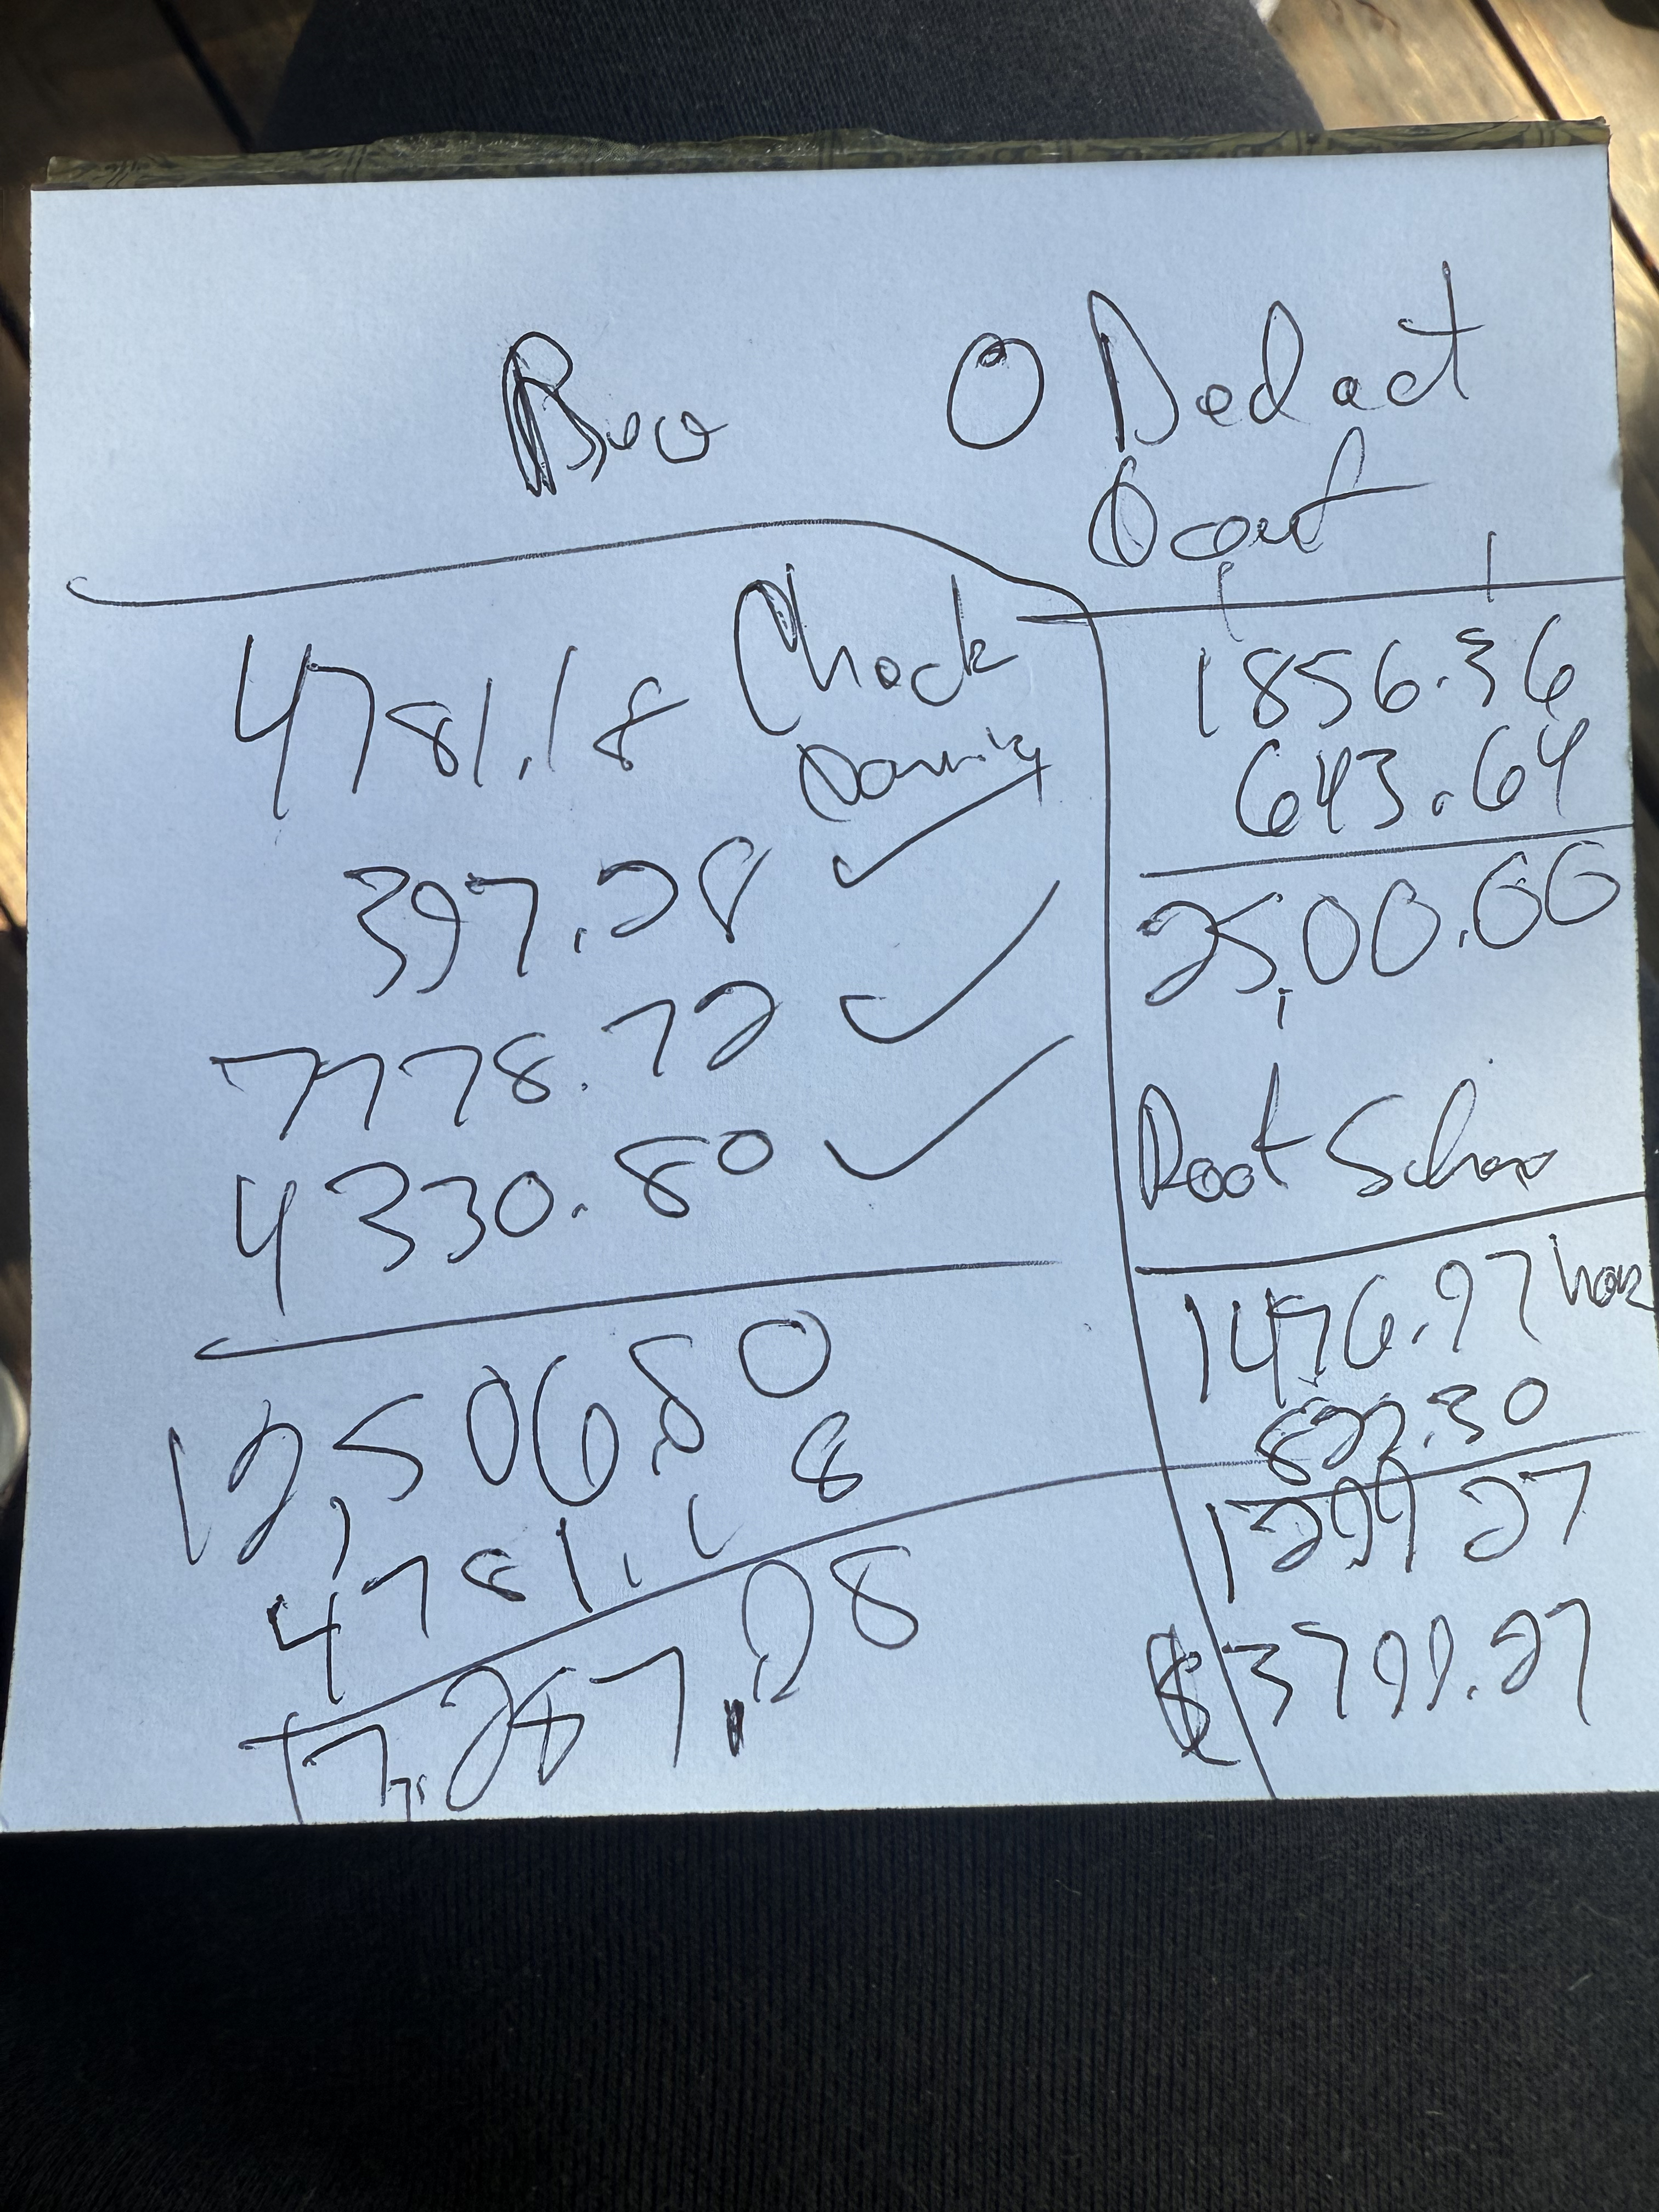 Rec
O Dedact
Oout
4781.18 Check
397.28
7778.72
4330.80
12,506.80
4781.18
17,287.28
1856.36
643.64
2500.00
Root
1476.97
822.30
27
$3799.27